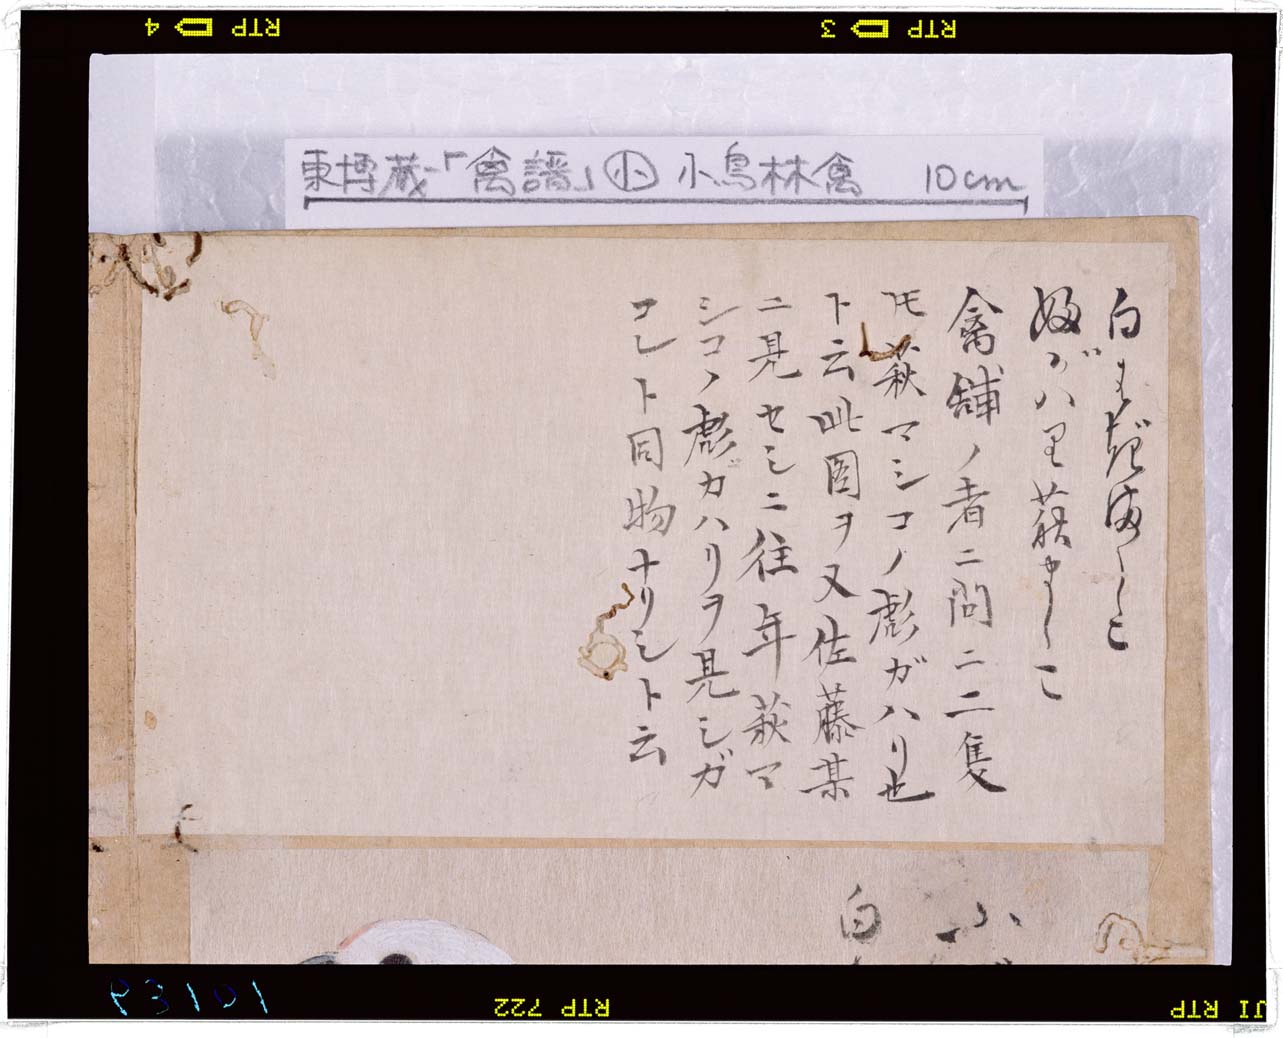 RTP 4
RTP 3
東博蔵「禽譜」㊙小鳥林禽 10cm
白ま しこ
婦がハり萩ましこ
禽舗ノ者ニ問ニ二隻
𪜈萩マシコノ彪ガハリ也
ト云此図ヲ又佐藤某
ニ見セシニ往年萩マ
シコノ彪ガハリヲ見シガ
コレト同物ナリシト云
白
93101
RTP 722
JI RTP